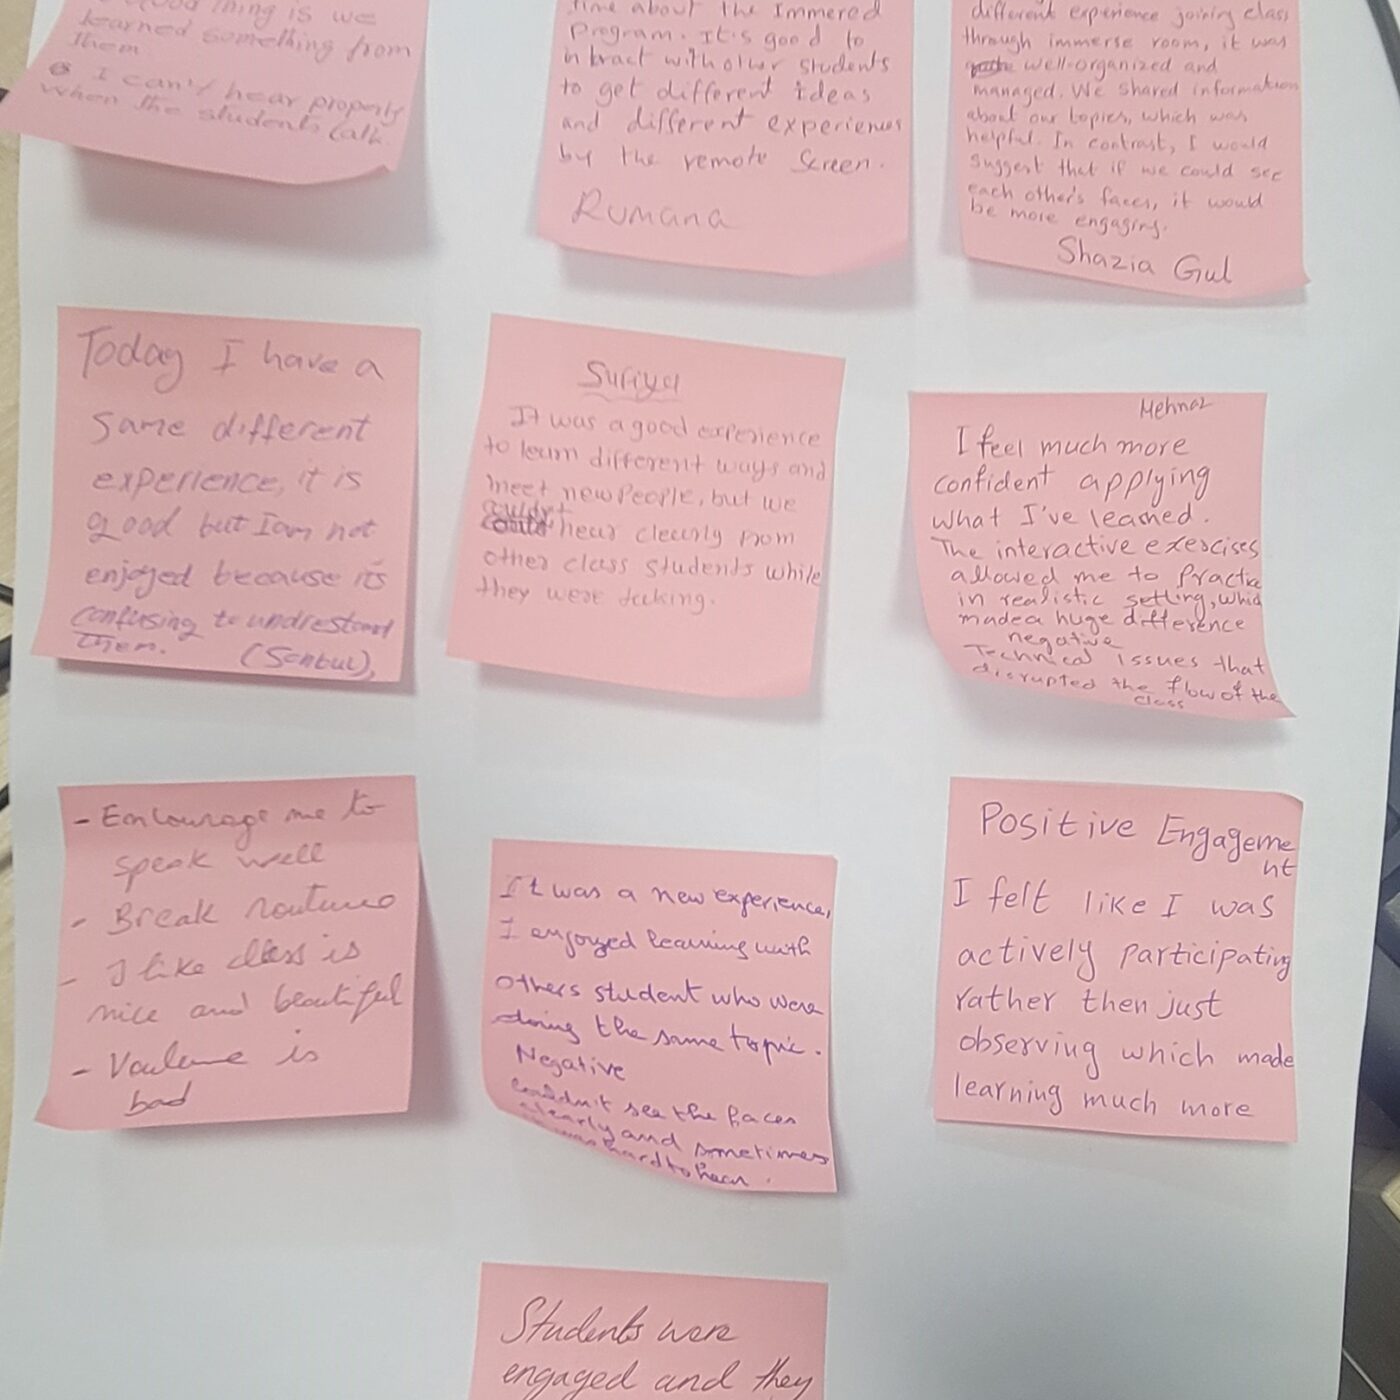 thing is we
learned something from
them.
I can't hear properly
when the students talk.
time about the Immered
Program. It's good to
intract with other students
to get different ideas
and different experiences
by the remote screen.
Rumana
different experience joining class
through immerse room, it was
well-organized and
managed. We shared information
about our topics, which was
helpful. In contrast, I would
suggest that if we could see
each other's faces, it would
be more engaging.
Shazia Gul
Today I have a
same different
experience, it is
good but I am not
enjoyed because its
confusing to undrestand
them. (Sonbul),
Suriya
It was a good experience
to learn different ways and
meet new people, but we
couldn't hear clearly from
other class students while
they were tecking.
Mehnaz
I feel much more
confident applying
what I've learned.
The interactive exercises
allowed me to practice
in realistic setting, which
made a huge difference
negative
Technical issues that
disrupted the flow of the
class
- Encourage me to
speak well
- Break routine
- I like class is
nice and beautiful
- Vouleme is
bad
It was a new experience,
I enjoyed learning with
others student who were
doing the same topic.
Negative
couldn't see the faces
clearly and sometimes
was hard to hear.
Positive Engageme
nt
I felt like I was
actively participating
rather then just
observing which made
learning much more
Students were
engaged and they